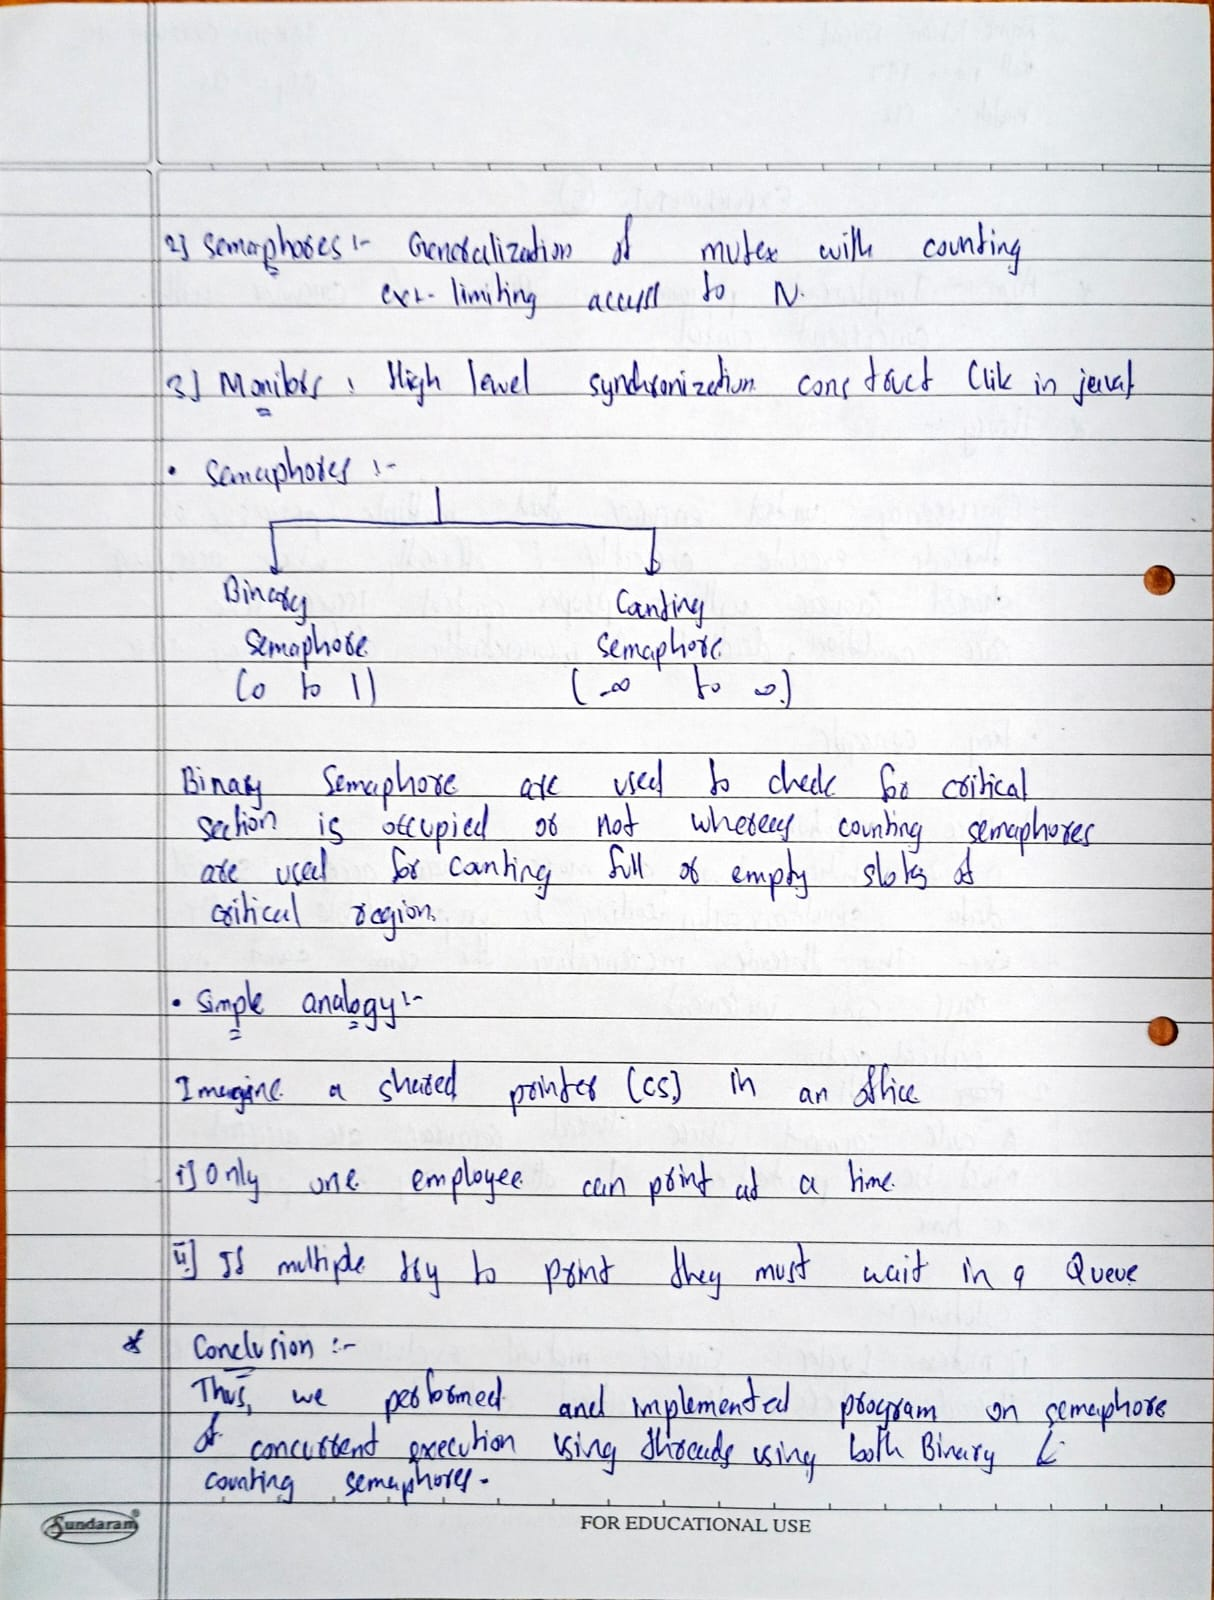 2] Semaphores :- Generalization of mutex with counting
ex:- limiting access to N.
3] Monitors : High level synchronization construct (like in java)
• Semaphores :-
Binary Counting
Semaphore Semaphore
(0 to 1) (-∞ to ∞)
Binary Semaphore are used to check for critical
section is occupied or not whereas counting semaphores
are used for counting full or empty slots of
critical region.
• Simple analogy :-
Imagine a shared printer (CS) in an office
i] Only one employee can print at a time.
ii] If multiple try to print they must wait in a Queue
* Conclusion :-
Thus, we performed and implemented program on semaphore
of concurrent execution using threads using both Binary &
counting semaphores.
Sundaram®
FOR EDUCATIONAL USE